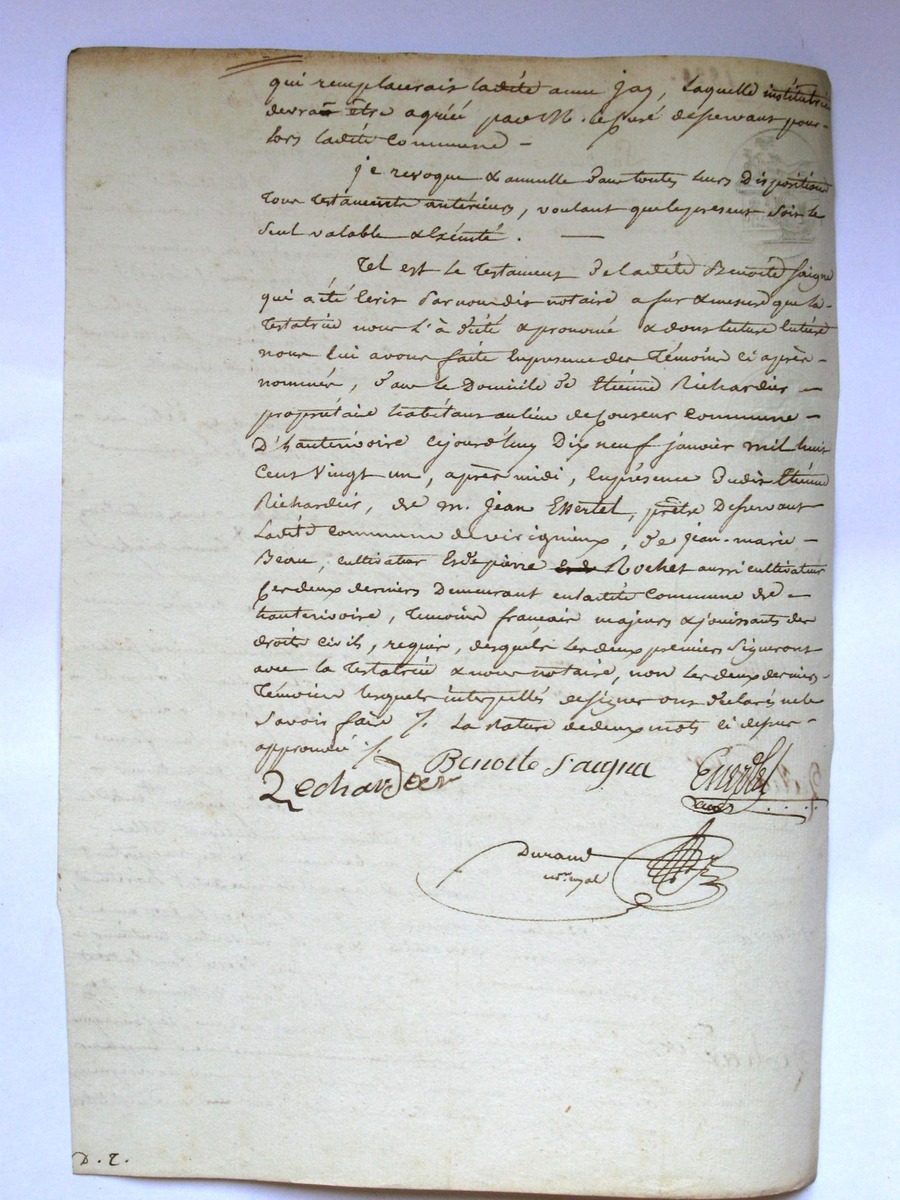 qui remplacerais ladite anne jay, laquelle institutrice
devra être agréé par M. le curé desservant pour-
lors ladite Commune –
je revoque & annulle dans toutes leurs Dispositions
tous testaments antérieurs, voulant que le present soit le
seul valable & Exécuté. —
Tel est le Testament de ladite Benoite Saigne
qui a été Ecrit par nous dit notaire a fur & mesure que la-
Testatrice nous l'à dicté & prononcé & dont lecture Entière
nous lui avons faite En presence des Témoins ci après-
nommés, dans le Domicile de Etienne Richardier –
propriétaire habitant au lieu de commune –
D'hauterivoire cejourd'huy Dix neuf janvier mil huit
Cent Vingt un, après midi, En présence dudit Etienne
Richardier, de m. Jean Essertel, prêtre Desservant
Ladite Commune de virigneux, de jean-marie –
Beau, cultivateur & de pierre Rochet aussi cultivateur
Ces deux derniers Demeurant en ladite Commune de –
hauterivoire, Témoins français majeurs & jouissants des
droits civils, requis, desquels Les deux premiers Signeront
avec la Testatrice & nous notaire, non Les deux derniers
Témoins lesquels interpellés de signer ont déclarés ne le
Savoir faire ./. La rature de deux mots ci dessus –
approuvée ./.
Richardier Benoite Saigne Essertel
Durand
nre. royal
D. T.